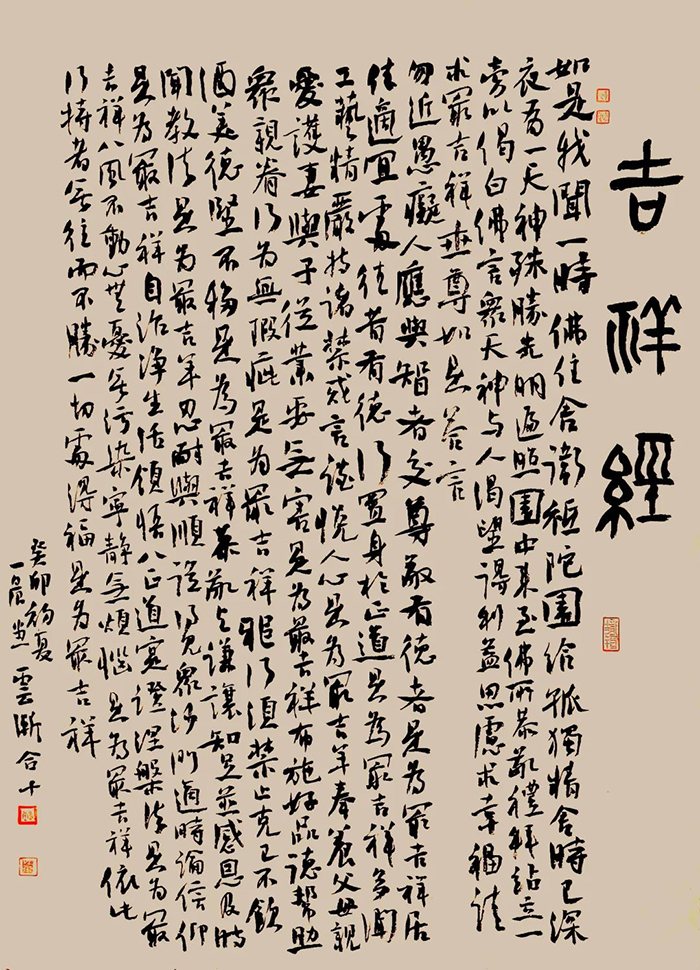 吉祥經
如是我聞一時佛住舍衛祗陀園給孤獨精舍時已深
夜有一天神殊勝光明遍照園中來至佛所恭敬禮拜站立一
旁以偈白佛言衆天神与人渴望得利益思慮求幸福請
求最吉祥世尊如是答言
勿近愚癡人應與智者交尊敬有德者是為最吉祥居
住適宜處往昔有德行置身於正道是為最吉祥多聞
工藝精嚴持諸禁戒言談悅人心是為最吉祥奉養父母親
愛護妻與子從業要無害是為最吉祥布施好品德幫助
衆親眷行為無瑕疵是為最吉祥邪行須禁止克己不飲
酒美德堅不移是為最吉祥恭敬与謙讓知足並感恩及時
聞教法是為最吉祥忍耐與順從得見衆沙門適時論信仰
是為最吉祥自治淨生活領悟八正道實證涅槃法是為最
吉祥八風不動心無憂無污染寧靜無煩惱是為最吉祥依此
行持者無往而不勝一切處得福是為最吉祥
癸卯初夏
雲漸合十